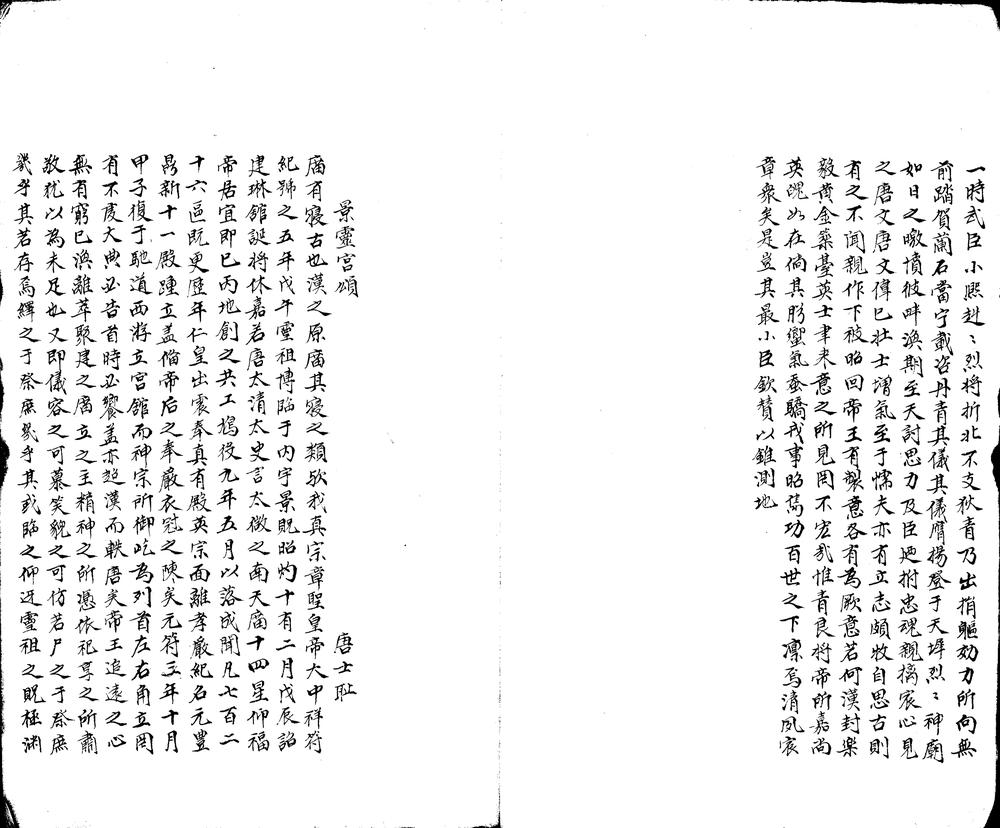 一時武臣小熙赳〻烈将折北不支狄青乃出捐軀効力所向無
前踏賀蘭石當宁載咨丹青其儀其儀膺揚登于天墀烈〻神廟
如日之暾憤彼畔渙期至天討思力及臣廼拊忠魂親摛宸心見
之唐文唐文偉已壮士増氣至于懦夫亦有立志頗牧自思古則
有之不聞親作下被昭回帝王有製意各有為厥意若何漢封樂
毅黄金築臺英士聿来意之所見罔不宏哉惟青良将帝所嘉尚
英魄如在倘其肹蠁氣吞驕戎事昭筑功百世之下凛焉清夙宸
章衆矣是豈其最小臣欽賛以錐測地
景靈宮頌
唐士耻
廟有寝古也漢之原廟其寝之類歟我真宗章聖皇帝大中祥符
紀號之五年戊午靈祖博臨于内宇景貺昭灼十有二月戊辰詔
建琳館誕将休嘉若唐太清太史言太微之南天廟十四星仰福
帝居宜即巳丙地創之共工鳩役九年五月以落成聞凡七百二
十六區既更歷年仁皇出震奉真有殿英宗面離孝嚴紀名元豊
昜新十一殿踵立盖偹帝后之奉嚴衣冠之陳矣元符三年十月
甲子復于馳道西游立宮館而神宗所御屹為列首左右角立罔
有不虔大典必告首時必饗盖亦趂漢而軼唐矣帝王追遠之心
無有窮已渙離萃聚建之廟立之主精神之所憑依祀享之所肅
敬犹以為未足也又即儀容之可慕笑貌之可仿若尸之于祭庶
幾乎其若存焉繹之于祭庶㡬乎其或臨之仰迓靈祖之貺極渊